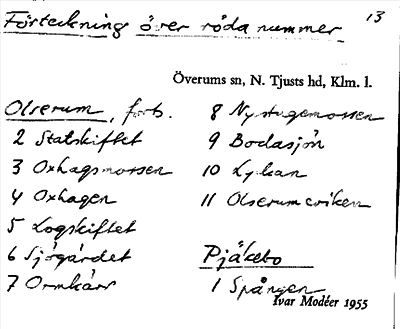 Förteckning över röda nummer
13
Överums sn, N. Tjusts hd, Klm. l.
Olserum, forts.
2 Statskiftet
3 Oxhagsmossen
4 Oxhagen
5 Logskiftet
6 Sjögärdet
7 Ormkärr
8 Nystugemossen
9 Bodasjön
10 Lykan
11 Olserumsviken
Pjäkebo
1 Spången
Ivar Modéer 1955